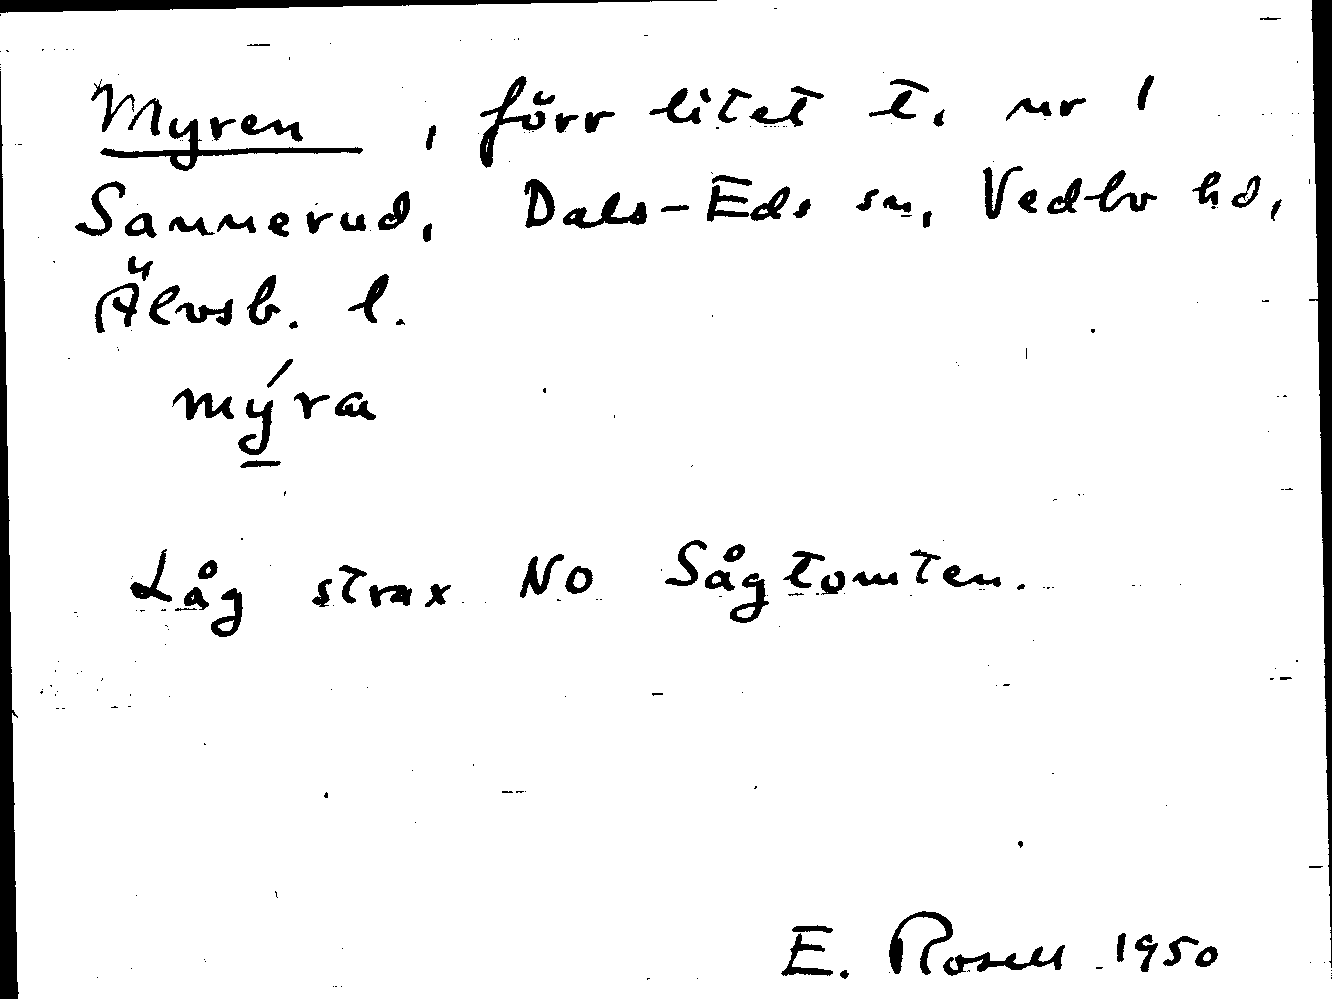 Myren, förr litet t. nr 1
Sannerud, Dals-Eds sn, Vedbo hd,
Älvsb. l.
mýra
Låg strax NO Sågtomten.
E. Rosell 1950